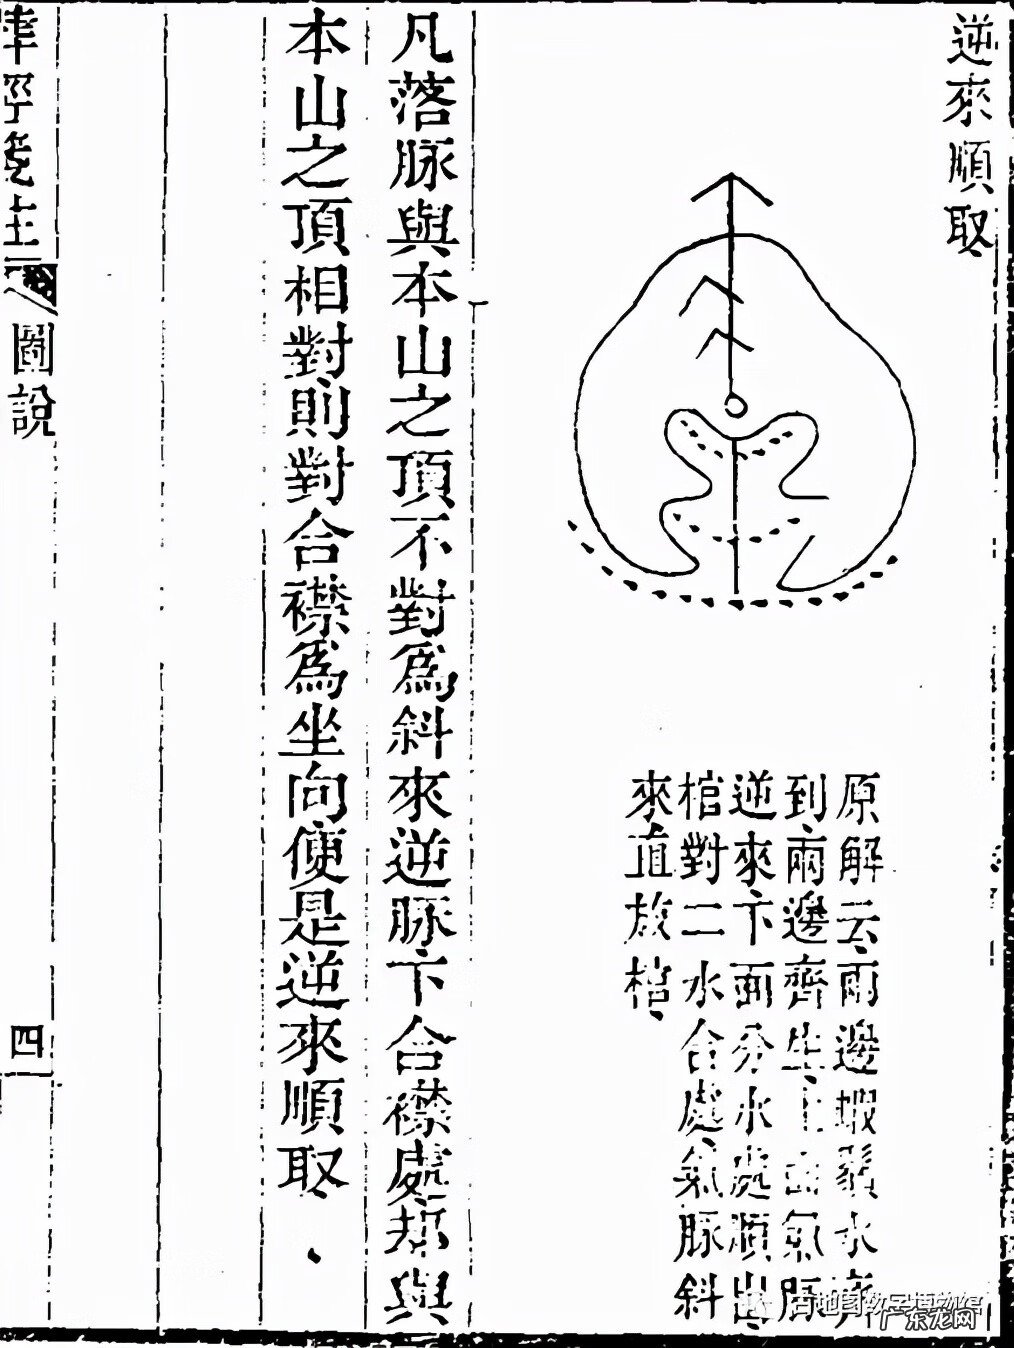 逆來順取
原解云兩邊蝦鬚水齊
到兩邊齊生上面氣脈
逆來下面分水處順出
棺對二水合處氣脈斜
來直放棺
凡落脉與本山之頂不對爲斜來逆脉下合襟處却與
本山之頂相對則對合襟爲坐向便是逆來順取、
圖說
四
古地图数字博物馆
广东龙网